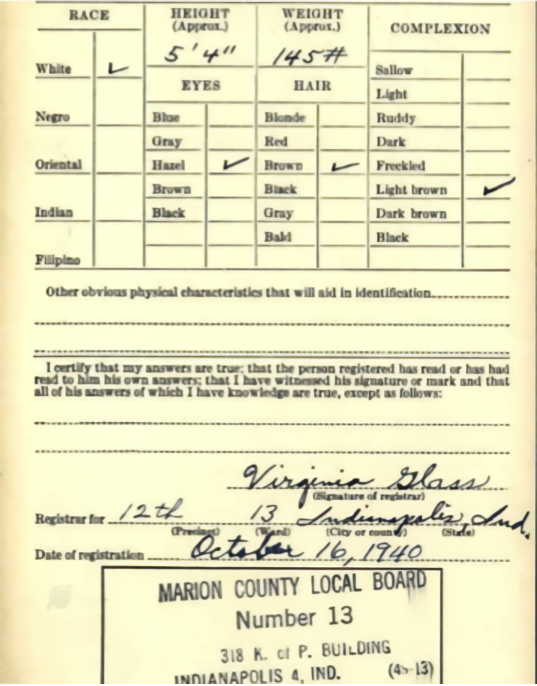 RACE HEIGHT (Approx.) WEIGHT (Approx.) COMPLEXION
5'4" 145#
White ✓ Sallow
EYES HAIR
Light
Negro Blue Blonde Ruddy
Gray Red Dark
Oriental Hazel ✓ Brown ✓ Freckled
Brown Black Light brown ✓
Indian Black Gray Dark brown
Bald Black
Filipino
Other obvious physical characteristics that will aid in identification
I certify that my answers are true; that the person registered has read or has had
read to him his own answers; that I have witnessed his signature or mark and that
all of his answers of which I have knowledge are true, except as follows:
Virginia Glass
(Signature of registrar)
Registrar for 12th 13 Indianapolis, Ind.
(Precinct) (Ward) (City or county) (State)
Date of registration October 16, 1940
MARION COUNTY LOCAL BOARD
Number 13
318 K. of P. BUILDING
INDIANAPOLIS 4, IND. (49-13)